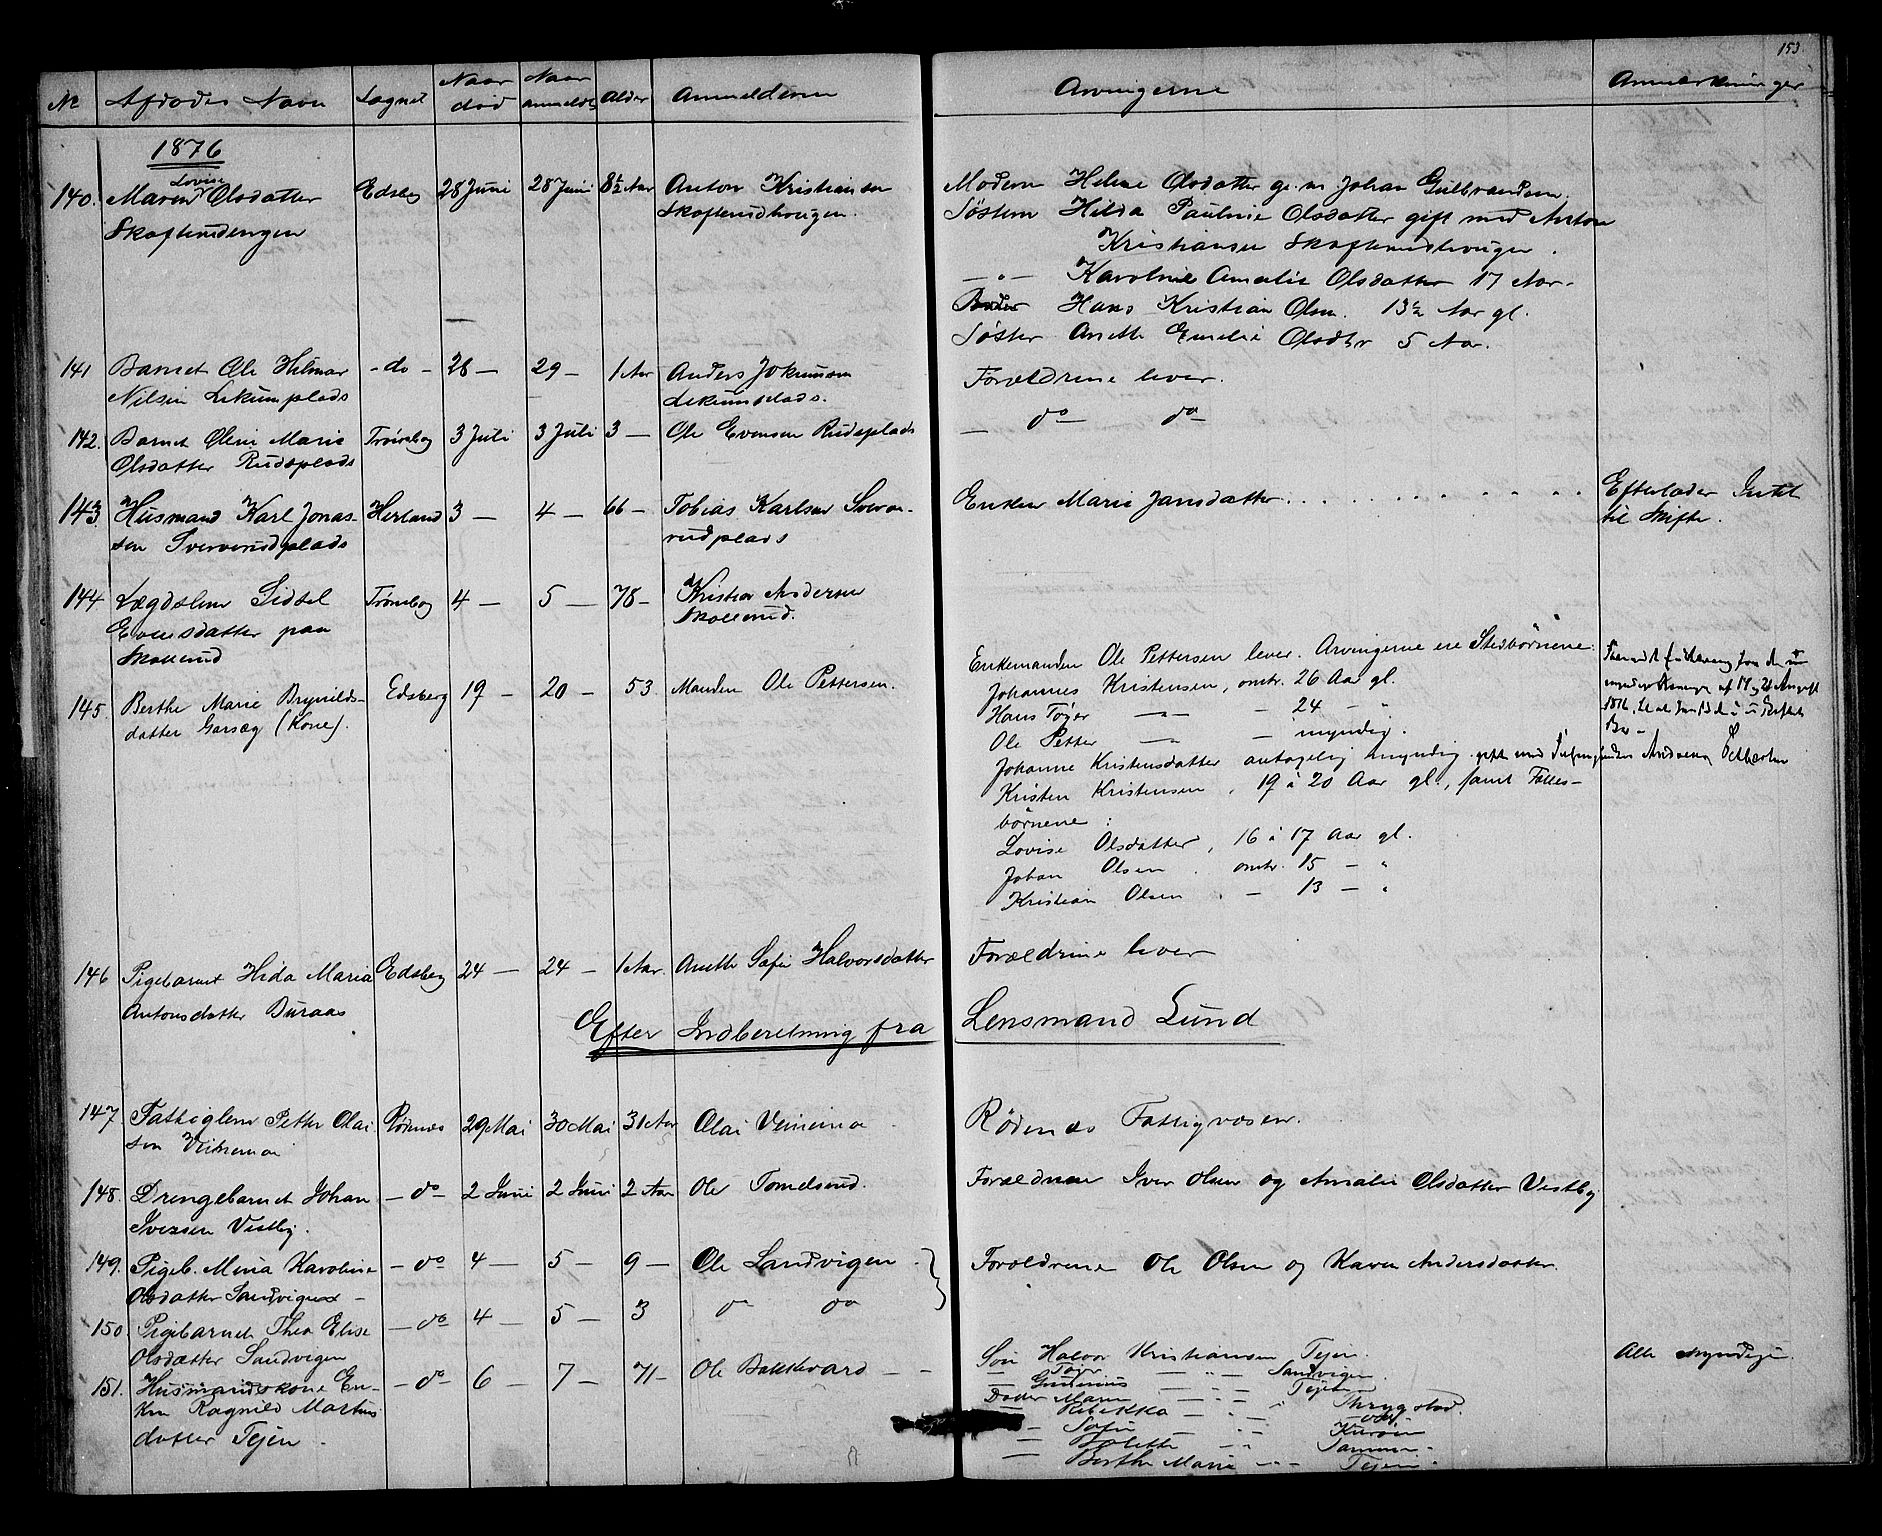 153.
No Afdødes Navn Sognet Naar død Naar anmeldt Alder Anmelderen Arvingerne Anmærkninger
1876
140. Maren Lovise Olsdatter Edsberg 28 Juni 28 Juni 8½ Aar Anton Kristiansen Moderen Helene Olsdatter g. m. Johan Gulbrandsen
Skofterudengen Skofterudhougen. Søsteren Hilda Pauline Olsdatter gift med Anton
Kristiansen Skofterudhougen.
— " — Karoline Amalie Olsdatter 17 Aar.
Broder Hans Kristian Olsen. 13½ Aar gl.
Søster Anette Emelie Olsdtr 5 Aar.
141 Barnet Ole Hilmar - do - 28 — 29 - 1 Aar Anders Jokumsen Forældrene lever.
Nilsen Lekumplads Lekumplads.
142. Barnet Oline Marie Trømborg 3 Juli 3 Juli 3 — Ole Evensen Rudsplads — do do
Olsdatter Rudsplads
143 Husmand Karl Jonas- Herland 3 — 4 — 66 — Tobias Karlsen Sverve- Enken Marie Jansdatter. Efterlader Intet
sen Sververudplads rudplads til Skifte.
144 Lægdslem Sidsel Trømborg 4 — 5 — 78 - Kristian Andersen
Evensdatter paa Skollerud.
Skollerud
145. Berthe Marie Brynilds- Edsberg 19 - 20 - 53. Manden Ole Pettersen. Enkemanden Ole Pettersen lever. Arvingerne ere Stedbørnene:
datter Garsæg (Kone). Johannes Kristensen, omtr. 26 Aar gl.
Hans Tøger — " — - 24 - "
Ole Petter — " — - myndig.
Johanne Kristensdatter antagelig myndig gift med Andreas
Kristen Kristensen, 19 à 20 Aar gl., samt Fælles-
børnene:
Lovise Olsdatter, 16 à 17 Aar gl.
Johan Olsen. omtr. 15 - "
Kristian Olsen. — 13 — "
146 Pigebarnet Hilda Maria Edsberg 24 — 24 — 1 Aar. Anette Sofie Halvorsdatter Forældrene lever
Antonsdatter Buraas
Efter Indberetning fra Lensmand Lund
147. Fattiglem Petter Olai Rødenes 29 Mai 30 Mai 31 Aar Olai Rødenes Fattigvæsen.
sen
148. Drengebarnet Johan — do 2 Juni 2 Juni 2 Aar Ole Tomelsrud. Forældrene Iver Olsen og Amalie Olsdatter Vestby
Iversen Vestby.
149. Pigeb. Mina Karoline — do 4 — 5 — 9 — Ole Sandvigen. Forældrene Ole Olsen og Karen Andersdatter.
Olsdatter Sandvigen —
150 Pigebarnet Thea Elise — do 4 — 5 — 3 do do
Olsdatter Sandvigen
151. Husmandskone En- — do 6 — 7 — 71 - Ole — — Søn Halvor Kristiansen Tejen. Alle myndige.
ken Ragnild Martins — Tøger — " — Sandvigen
datter Tejen. — Gunerius — " — Tejen
Datter Maren — " — Thrygstad.
— Rebekka — " —
— Sofie — " —
— Bolette — " —
— Berthe Marie — " — Tejen.